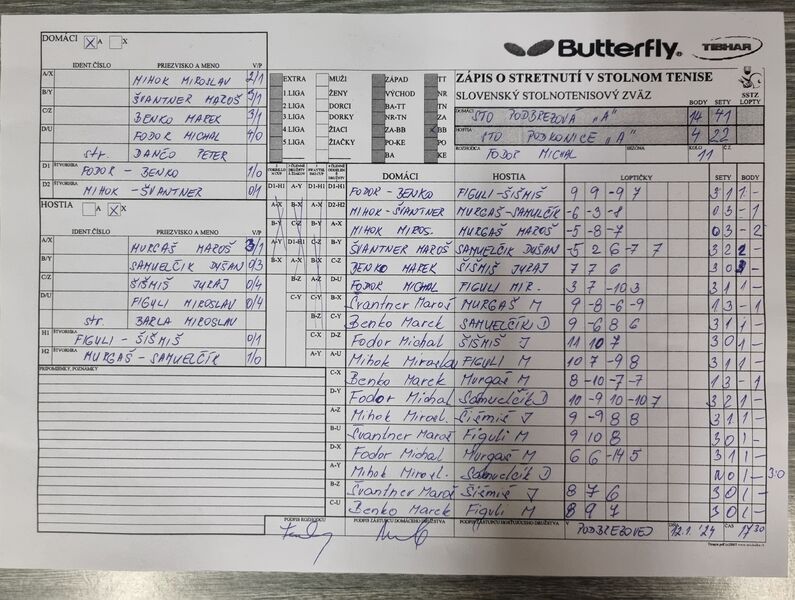 DOMÁCI X A X
Butterfly TIBHAR
IDENT.ČÍSLO PRIEZVISKO A MENO V/P
A/X MIHOK MIROSLAV 2/1
B/Y ŠVANTNER MAROŠ 3/1
C/Z BENKO MAREK 3/1
D/U FODOR MICHAL 4/0
str. DANČO PETER
D1 ŠTVORHRA FODOR - BENKO 1/0
D2 MIHOK - ŠVANTNER 0/1
HOSTIA A X X
IDENT.ČÍSLO PRIEZVISKO A MENO V/P
A/X MURGAŠ MAROŠ 3/1
B/Y SAMUELČÍK DUŠAN 0/3
C/Z ŠIŠMIŠ JURAJ 0/4
D/U FIGULI MIROSLAV 0/4
str. BARLA MIROSLAV
H1 ŠTVORHRA FIGULI - ŠIŠMIŠ 0/1
H2 MURGAŠ - SAMUELČÍK 1/0
PRIPOMIENKY, POZNÁMKY
EXTRA MUŽI ZÁPAD TT
1.LIGA ŽENY VÝCHOD NR
2.LIGA DORCI BA-TT TN
3.LIGA DORKY NR-TN ZA
4.LIGA ŽIACI ZA-BB BB
5.LIGA ŽIAČKY PO-KE PO
BA KE
ZÁPIS O STRETNUTÍ V STOLNOM TENISE
SLOVENSKÝ STOLNOTENISOVÝ ZVÄZ
SSTZ
BODY SETY LOPTY
DOMÁCI STO PODBREZOVÁ "A" 14 41
HOSTIA STO PODKONICE "A" 4 22
ROZHODCA FODOR MICHAL SEZÓNA KOLO 11 Č.Z.
DOMÁCI HOSTIA LOPTIČKY SETY BODY
FODOR - BENKO FIGULI-ŠIŠMIŠ 9 9 -9 7 3 1 1 -
MIHOK - ŠVANTNER MURGAŠ-SAMUELČÍK -6 -3 -8 0 3 - 1
MIHOK MIROS. MURGAŠ MAROŠ -5 -8 -7 0 3 - 2
ŠVANTNER MAROŠ SAMUELČÍK DUŠAN -5 2 6 -7 7 3 2 2 -
BENKO MAREK ŠIŠMIŠ JURAJ 7 7 6 3 0 3 -
FODOR MICHAL FIGULI MIR. 3 7 -10 3 3 1 1 -
Švantner Maroš MURGAŠ M 9 -8 -6 -9 1 3 - 1
Benko Marek SAMUELČÍK D 9 -6 8 6 3 1 1 -
Fodor Michal ŠIŠMIŠ J 11 10 7 3 0 1 -
Mihok Miroslav FIGULI M 10 7 -9 8 3 1 1 -
Benko Marek Murgaš M 8 -10 -7 -7 1 3 - 1
Fodor Michal Samuelčík D 10 -9 10 -10 7 3 2 1 -
Mihok Mirosl. Šišmiš J 9 -9 8 8 3 1 1 -
Švantner Maroš Figuli M 9 10 8 3 0 1 -
Fodor Michal Murgaš M 6 6 -14 5 3 1 1 -
Mihok Mirosl. Samuelčík D WO 1 - 3:0
Švantner Maroš Šišmiš J 8 7 6 3 0 1 -
Benko Marek Figuli M 8 9 7 3 0 1 -
PODPIS ROZHODCU PODPIS ZÁSTUPCU DOMÁCEHO DRUŽSTVA PODPIS ZÁSTUPCU HOSŤUJÚCEHO DRUŽSTVA V PODBREZOVEJ DŇA 12.1.'24 ČAS 17 30